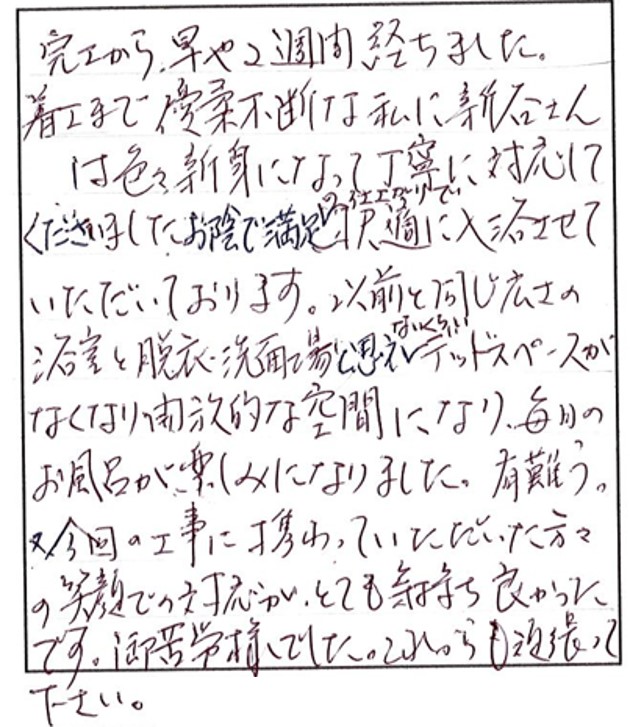 完工から、早や2週間経ちました。
着工まで優柔不断な私に新谷さん
は色々親身になって丁寧に対応して
くださいました お陰で満足な仕上がりで 快適に入浴させて
いただいております。以前と同じ広さの
浴室と脱衣・洗面場と思えないくらい デッドスペースが
なくなり開放的な空間になり、毎日の
お風呂が楽しみになりました。有難う。
又今回の工事に携わっていただいた方々
の笑顔での対応が、とても気持ち良かった
です。御苦労様でした。これからも頑張って
下さい。